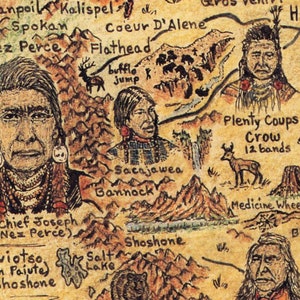 Kalispel
Spokan
Coeur D'Alene
Nez Perce
Flathead
buffalo
jump
Plenty Coups
Crow
12 bands
Sacajawea
Bannock
Medicine Wheel
Chief Joseph
(Nez Perce)
Shoshone
Salt
Lake
Shoshone